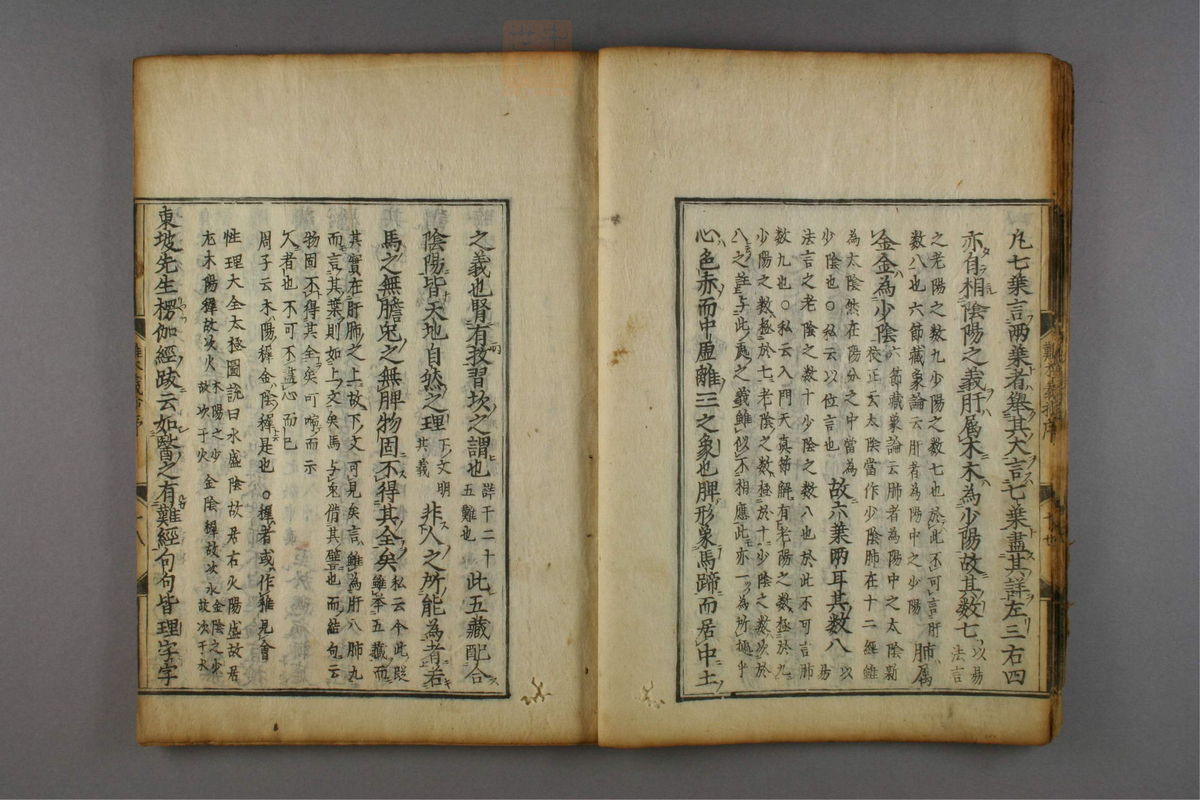 凡七葉言兩葉者舉其大言七葉盡其詳左三右四
亦自相陰陽之義肝属木木為少陽故其数七以易法言
之老陽之数九少陽之数七也於此不可言肝
数八也六節藏象論云肝者為陽中之少陽肺属
金金為少陰六節藏象論云肺者為陽中之太陰新校正云太陰當作少陰肺在十二經雖
為太陰然在陽分之中當為
少陰也○私云以位言也故六葉兩耳其数八以易
法言之老陰之数十少陰之数八也於此不可言肺
数九也○私云入門天真節解有老陽之数極於九
少陽之数極於七老陰之数極於十少陰之数次於
八之註与此處之義雖似不相應此亦一為所極乎
心色赤而中虚離三之象也脾形象馬蹄而居中土
之義也腎有技習坎之謂也詳于二十五難也此五藏配合
陰陽皆天地自然之理下文明其義非人之所能為者若
馬之無膽兎之無脾物固不得其全矣私云今此段雖奉五藏而
其實在肝肺之上故下文可見矣言雖為肝八肺九
而言其葉則如上文矣馬与兎借其譬也而結句云
物固不得其全矣可喻而示
人者也不可不盡心而已
周子云木陽穉金陰穉是也○穉者或作稚見會
性理大全太極圖説曰水盛陰故居右火陽盛故居
左木陽穉故次火木陽之少故次于火金陰穉故次水金陰之少故次于水
東坡先生楞伽經跋云如醫之有難經句句皆理字字